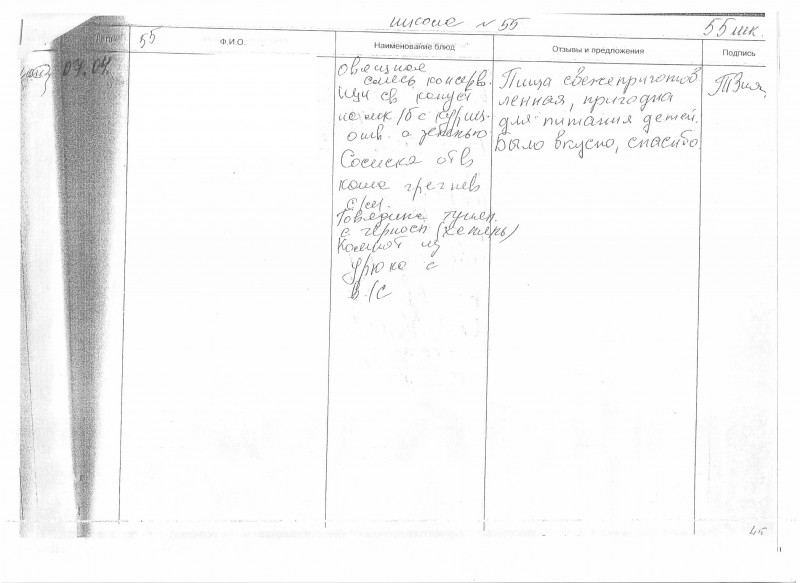 школа № 55
55 шк.
55
Ф.И.О.
Наименование блюд
Отзывы и предложения
Подпись
07.04.
Овощная
смесь консерв.
Щи св капуст
на мк/б с куриц.
отв. а зеленью
Сосиска отв
каша гречнев
с/м.
Говядина тушен.
с чернос (печень)
Компот из
урюка с
в/с
Пища свежеприготов
ленная, пригодна
для питания детей.
Было вкусно, спасибо
45